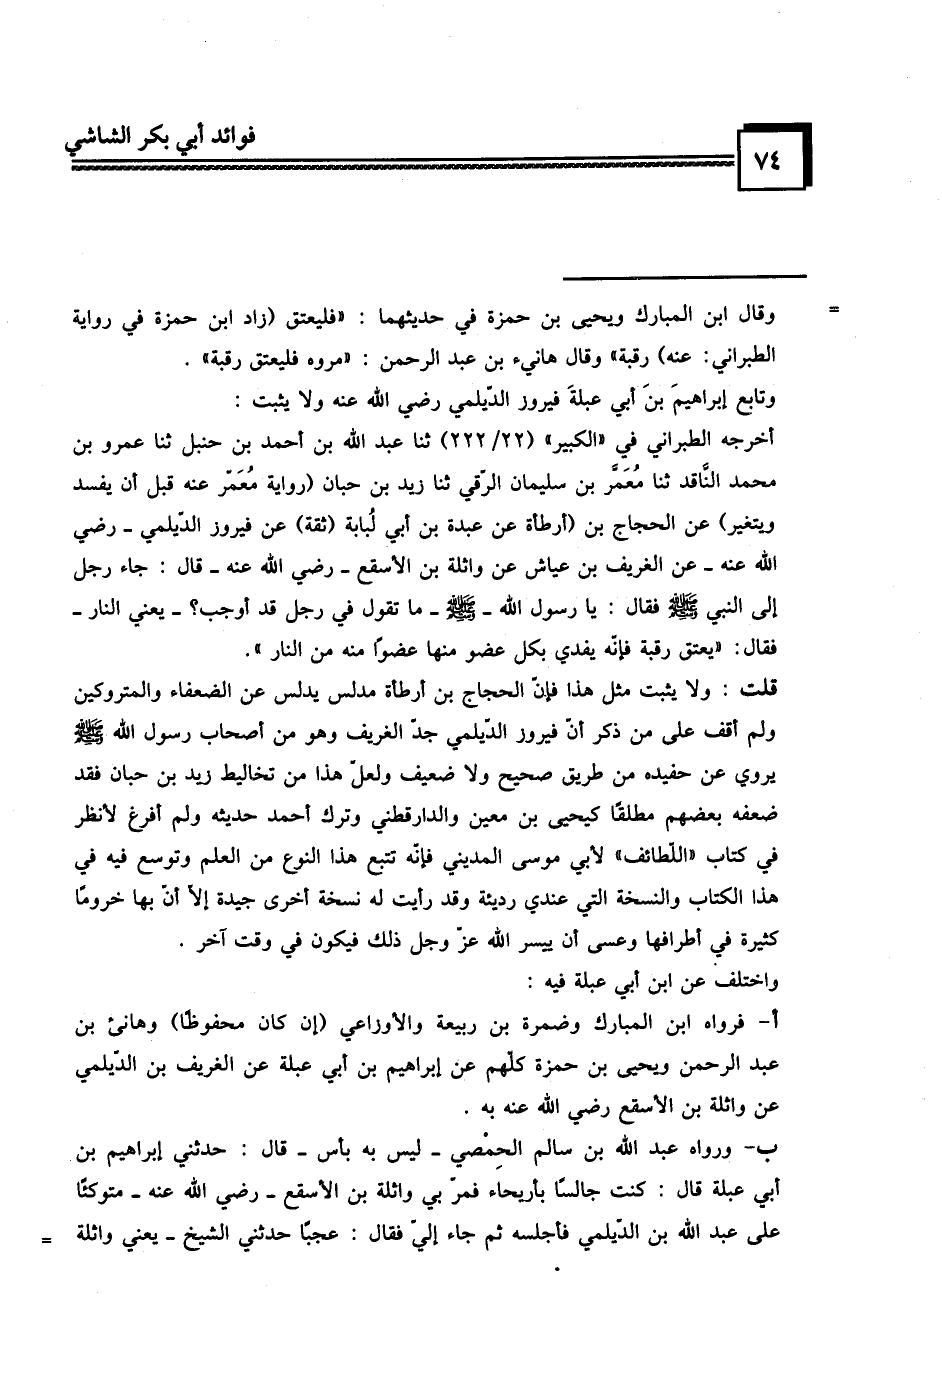 فوائد أبي بكر الشاشي
٧٤
= وقال ابن المبارك ويحيى بن حمزة في حديثهما : «فليعتق (زاد ابن حمزة في رواية
الطبراني: عنه) رقبة» وقال هانيء بن عبد الرحمن : «مروه فليعتق رقبة» .
وتابع إبراهيمَ بنَ أبي عبلةَ فيروز الدّيلمي رضي الله عنه ولا يثبت :
أخرجه الطبراني في «الكبير» (٢٢٢/٢٢) ثنا عبد الله بن أحمد بن حنبل ثنا عمرو بن
محمد النَّاقد ثنا مُعَمَّر بن سليمان الرّقي ثنا زيد بن حبان (رواية مُعَمّر عنه قبل أن يفسد
ويتغير) عن الحجاج بن (أرطأة عن عبدة بن أبي لُبابة (ثقة) عن فيروز الدّيلمي ـ رضي
الله عنه ـ عن الغريف بن عياش عن واثلة بن الأسقع ـ رضي الله عنه ـ قال : جاء رجل
إلى النبي ﷺ فقال : يا رسول الله ـ ﷺ ـ ما تقول في رجل قد أوجب؟ ـ يعني النار ـ
فقال: «يعتق رقبة فإنّه يفدي بكل عضو منها عضوًا منه من النار ».
قلت : ولا يثبت مثل هذا فإنّ الحجاج بن أرطأة مدلس يدلس عن الضعفاء والمتروكين
ولم أقف على من ذكر أنّ فيروز الدّيلمي جدّ الغريف وهو من أصحاب رسول الله ﷺ
يروي عن حفيده من طريق صحيح ولا ضعيف ولعلّ هذا من تخاليط زيد بن حبان فقد
ضعفه بعضهم مطلقًا كيحيى بن معين والدارقطني وترك أحمد حديثه ولم أفرغ لأنظر
في كتاب «اللّطائف» لأبي موسى المديني فإنّه تتبع هذا النوع من العلم وتوسع فيه في
هذا الكتاب والنسخة التي عندي رديئة وقد رأيت له نسخة أخرى جيدة إلاّ أنّ بها خرومًا
كثيرة في أطرافها وعسى أن ييسر الله عزّ وجل ذلك فيكون في وقت آخر .
واختلف عن ابن أبي عبلة فيه :
أ– فرواه ابن المبارك وضمرة بن ربيعة والأوزاعي (إن كان محفوظًا) وهانئ بن
عبد الرحمن ويحيى بن حمزة كلّهم عن إبراهيم بن أبي عبلة عن الغريف بن الدّيلمي
عن واثلة بن الأسقع رضي الله عنه به .
ب– ورواه عبد الله بن سالم الحِمْصي ـ ليس به بأس ـ قال : حدثني إبراهيم بن
أبي عبلة قال : كنت جالسًا بأريحاء فمرّ بي واثلة بن الأسقع ـ رضي الله عنه ـ متوكئًا
على عبد الله بن الدّيلمي فأجلسه ثم جاء إليّ فقال : عجبًا حدثني الشيخ ـ يعني واثلة =